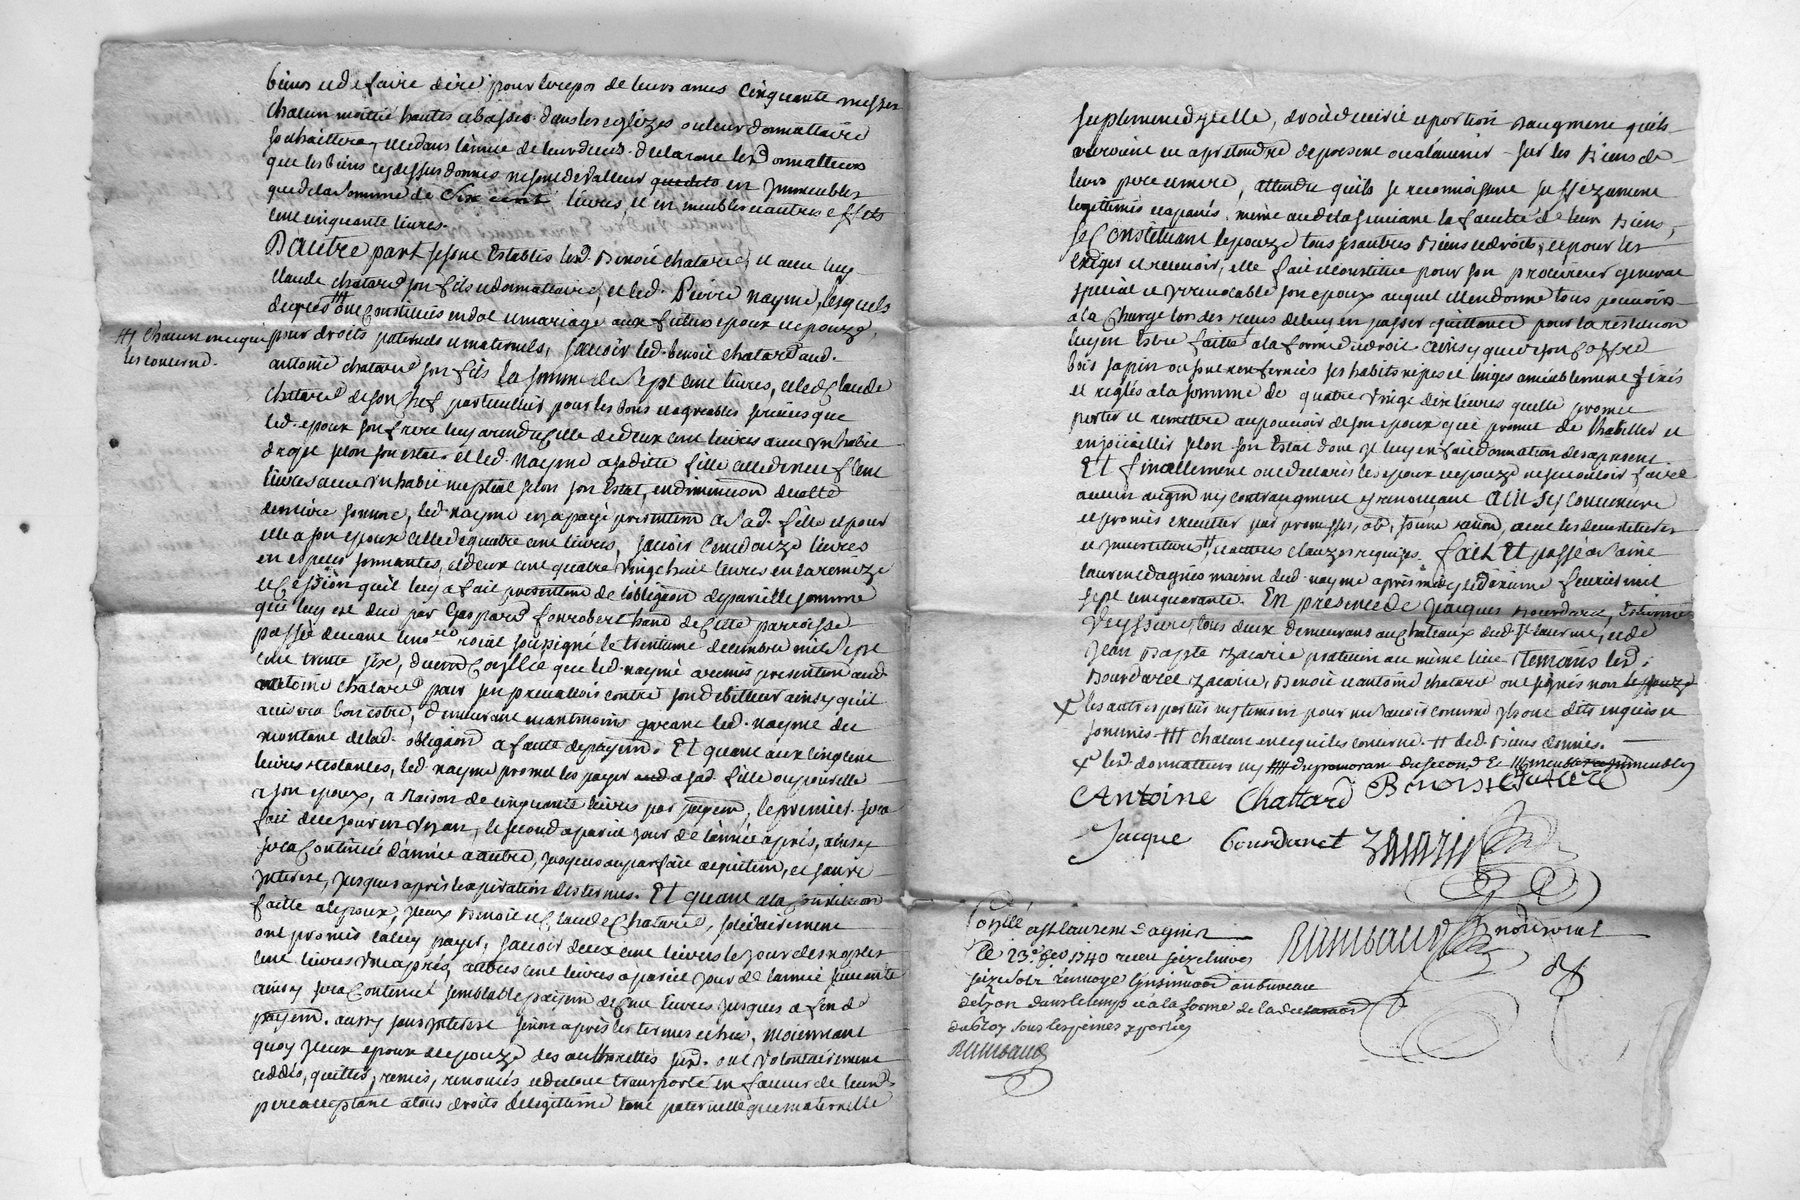 biens et de faire dire pour le repos de leurs ames cinquante messes
chacun moitié hautes et basses dans les eglizes ou leur donnattaire
souhaittera, et dans l'année de leur deces. declarant lesd. donnatteurs
que les biens cy dessus donnés ne sont de valleur en immeubles
que de la somme de six cent livres, et en meubles et autres effets
cent cinquante livres.
D'autre part se sont establis led. Benoit Chatard, et avec luy
Claude Chatard son fils et donnattaire, et led. Pierre Nayme, lesquels
de gres ont constitués en dot et mariage aux futurs epoux et epouze,
# chacun en ce qui
les concerne.
pour droits paternels et maternels, sçavoir led. Benoit Chatard aud.
Antoine Chatard son fils la somme de sept cent livres, et led. Claude
Chatard de son chef particulier, pour les bons et agreables services que
led. epoux son frere luy a rendu celle de deux cent livres avec un habit
drapt selon son estat. et led. Nayme a saditte fille celle de neuf cent
livres avec un habit nuptial selon son Estat, en diminution de cette
derniere somme, led. Nayme en a payé presentem. a sad. fille et pour
elle a son epoux celle de quatre cent livres, sçavoir cent douze livres
en especes sonnantes, et deux cent quatre vingt huit livres en la remize
et cession qu'il luy a fait presentem. de l'obligaon de pareille somme
qui luy est due par Gaspard Fonrobert hant. de cette parroisse
passée devant le no.re roial soussigné le trentune decembre mil sept
cent trente six, duement Coppie que led. Nayme a remis presentem. aud.
Antoine Chatard pour s'en prevalloir contre son debitteur ainsy qu'il
avisera bon estre, demeurant neantmoins garant led. Nayme du
montant de lad. obligaon a faute de payem. Et quant aux cinq cent
livres restantes, led. Nayme promet les payer a sad. fille ou pour elle
a son epoux, a raison de cinquante livres par payem., le premier sera
fait de ce jour en un an, le second a pareil jour de l'année après, ainsy
sera continué d'année a autre, jusques au parfait acquittem., et sans
interest, jusques après l'expiration des termes. Et quant a la constitution
faitte a l'epoux, iceux Benoit et Claude Chatard, solidairement
ont promis la luy payer, sçavoir deux cent livres le jour des nopces
cent livres un an après, autres cent livres a pareil jour de l'année suivante
ainsy sera continué semblable payem. de cent livres jusques a fin de
payem. aussy sans interest sinon après les termes echus, moiennant
quoy iceux epoux et epouze des authorittés sud. ont volontairement
ceddés, quittés, remis, renoncés et du tout transporté en faveur de leurd.
pere acceptant a tous droits de legittime tant paternelle que maternelle
suplement d'ycelle, droit de view et portion d'augment qu'ils
auroient ou a pretendre de present ou a l'avenir sur les biens de
leurs pere et mere, attendu qu'ils se reconnoissent suffizament
legittimés et aparés, même au dela suivant la faculté de leurs biens,
se constituant l'epouze tous ses autres biens et droits, et pour les
exiger et recevoir, elle fait et constitue pour son procureur general
special et irrevocable son epoux auquel elle en donne tous pouvoirs
a la charge lors des reçus de luy en passer quittance pour la restitution
luy en estre faitte a la forme du droit. ainsy que de son coffre
bois sapin ou sont renfermés ses habits nipes et linges amiablement fixés
et reglés a la somme de quatre vingt dix livres quelle promet
porter et remettre au pouvoir de son epoux qui promet de l'habiller et
enjoieallier selon son Estat dont il luy en fait donnation des a present.
Et finallement ont declarés les epoux et epouze ne se vouloir faire
aucun augm. ny contraugment y renonçant ainsy convenu
et promis executter par promesses, ob, soum. renon. avec les devestitures
et investitures # et autres clauzes requizes. fait et passé a Saint
Laurent d'Agnies maison dud. Nayme après midy le dixieme fevrier mil
sept cent quarante. En présence de Jacques Bourdaret, Estienne
Veyssure, tous deux demeurans au Chateaux dud. St Laurent, et de
Jean Bapte Zacarie praticien au même lieu temoins led.
Bourdaret, Zacarie, Benoit et Antoine Chatard ont signés non
X les autres parties ny temoin pour ne sçavoir comme ils ont dit enquis et
sommés # chacun en ce qui les concerne. # de d. biens donnés.
X lesd. donnatteurs ny
Antoine Chattard Benoist Chatard
Jacque Bourdaret Zacarie
Rambaud
Conllé a St Laurent d'Agnies
le 23e feo 1740 receu seize livres
seize sols renvoye l'insinuaon au bureau
de Lyon dans le temps et a la forme de la declaraon
du Roy sous les peines y portées
Rambaud